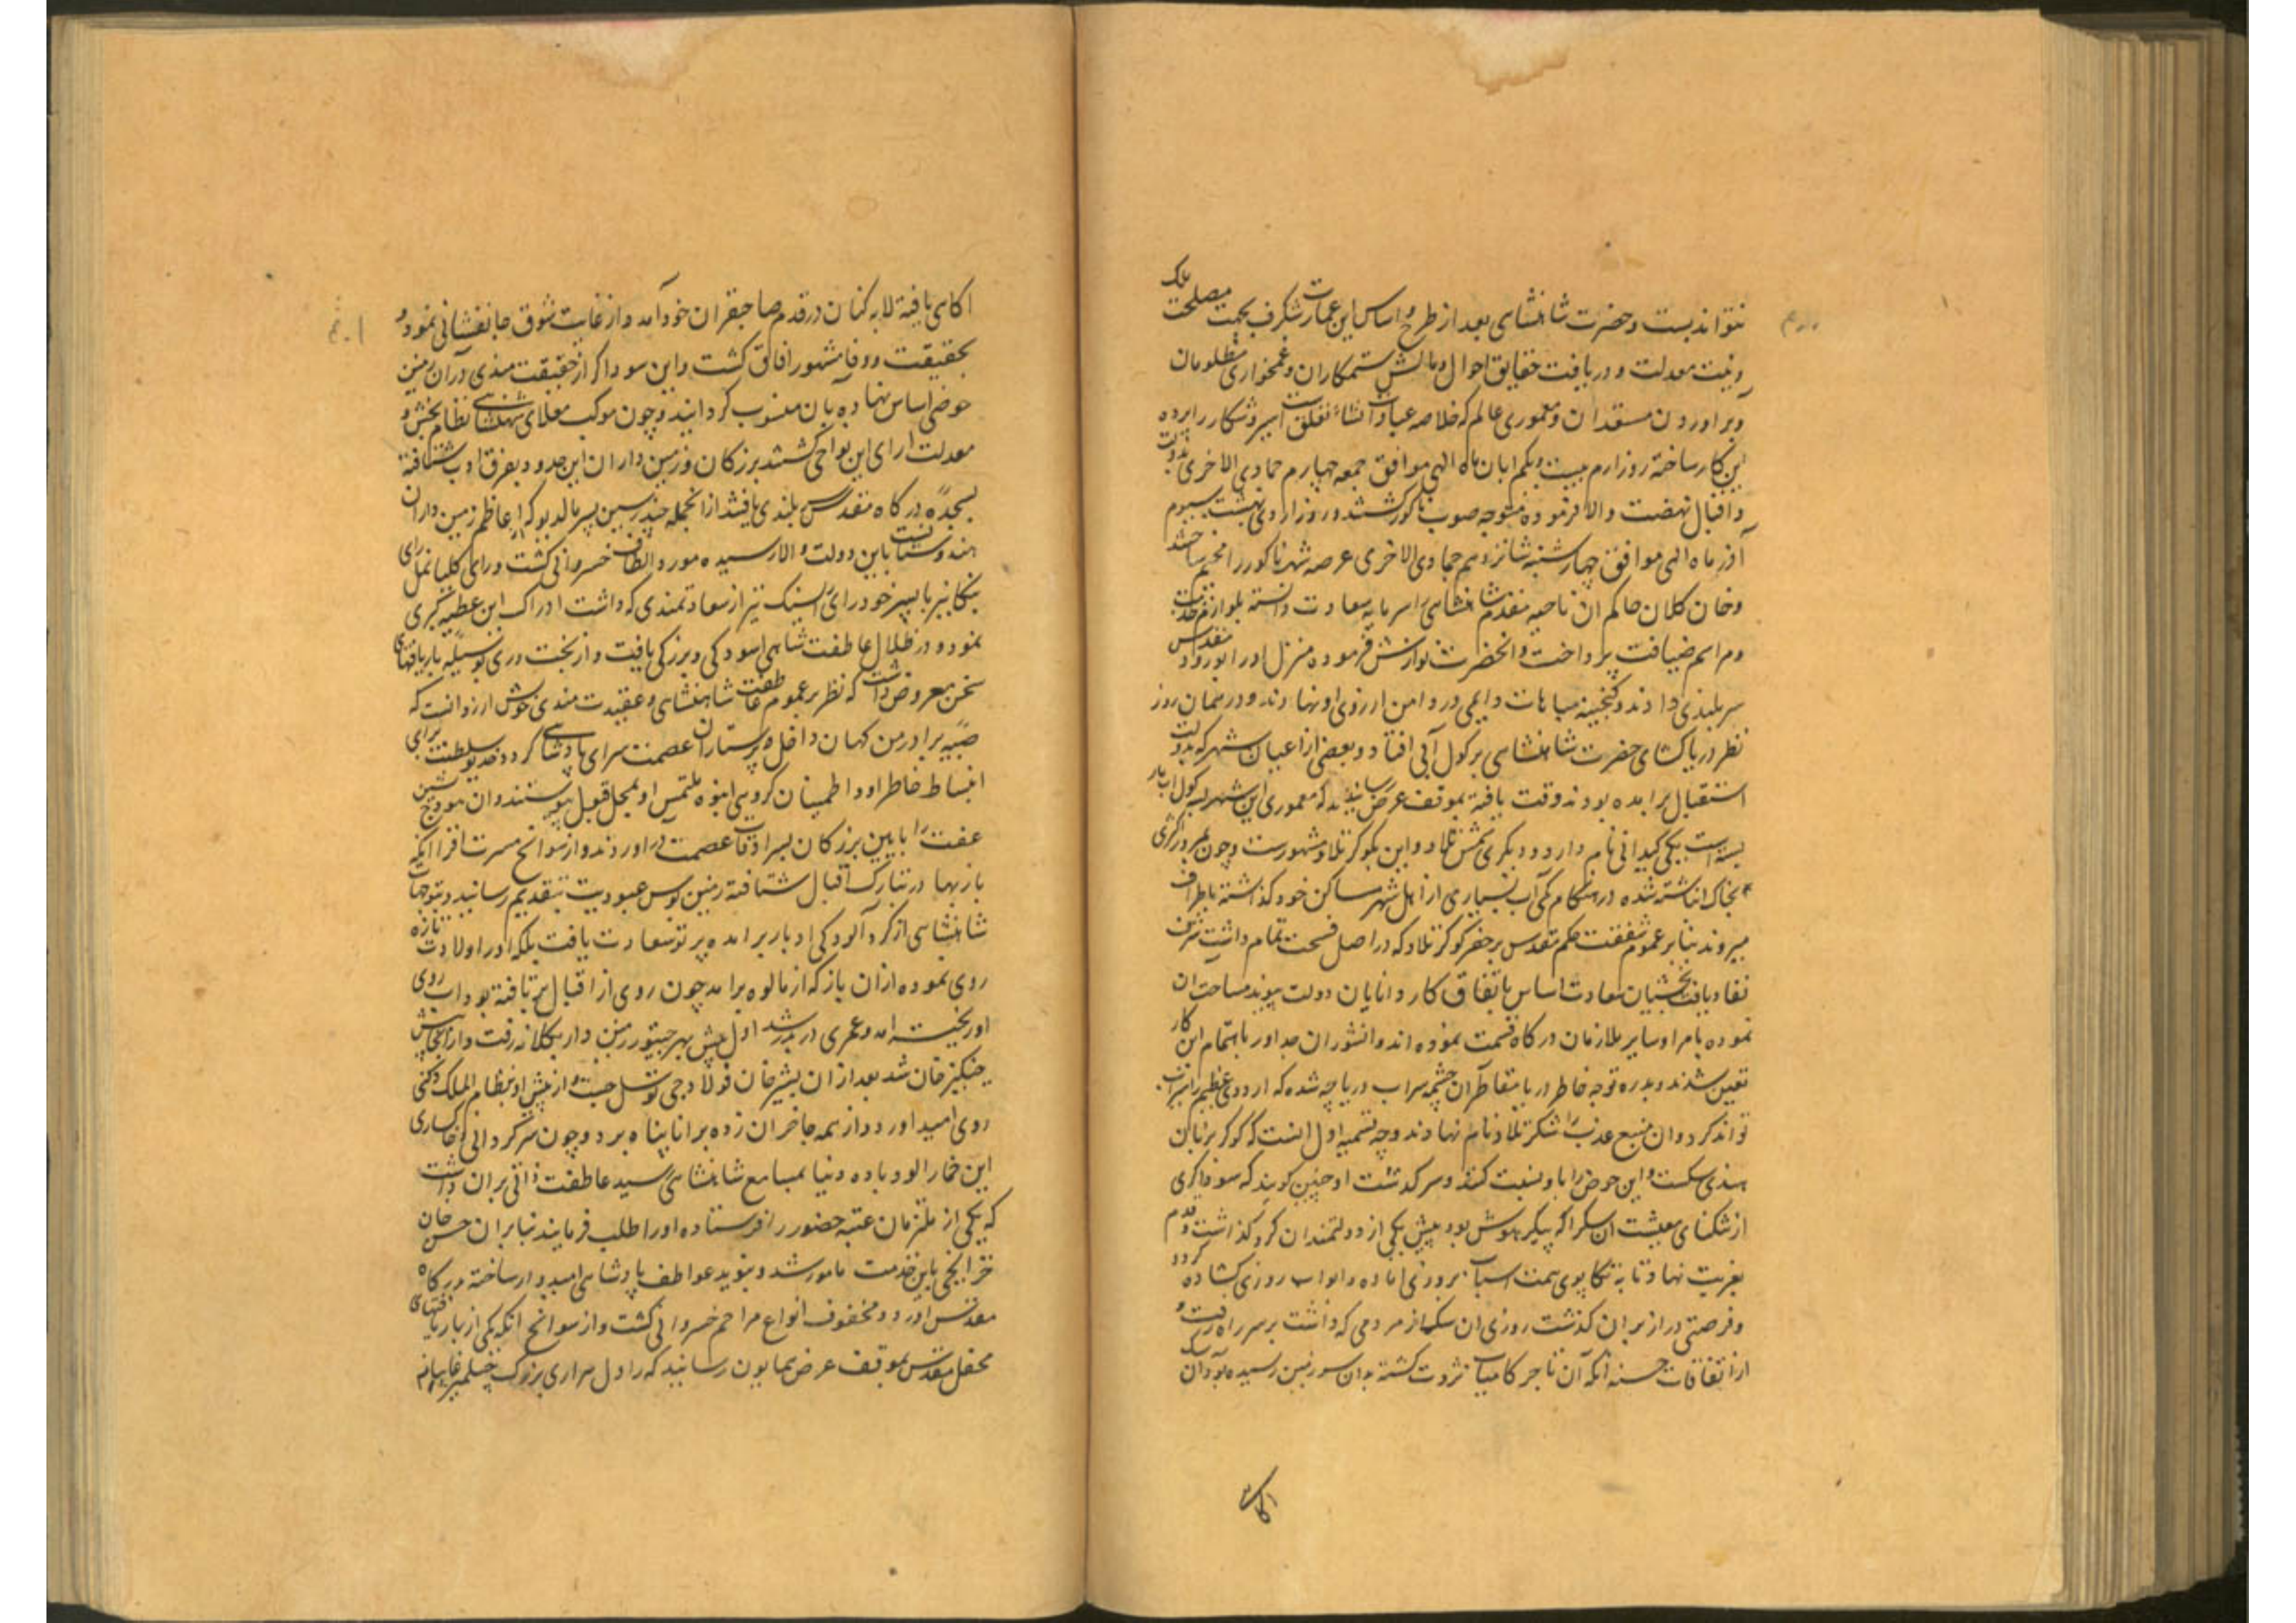 نتواند بست و حضرت شاهنشاهی بعد از طرح و اساس این عمارت شکرف بجهت مصلحت ملک
و نیت معدلت و دریافت حقایق احوال و مالش ستمکاران و غمخواری مظلومان
و براوردن مستعدان و معموری عالم که خلاصه عبادات نشاء تعلق است سیر و شکار را پرده
این کار ساخته روز ارم بیست و یکم ابان ماه الهی موافق جمعه چهارم جمادی الاخری بدولت
و اقبال نهضت والا فرموده متوجه صوب ناکور کشتند و روز اردی بهشت سیوم
آذر ماه الهی موافق چهارشنبه شانزدهم جمادی الاخری عرصه شهر ناکور را مخیم ساختند
و خان کلان حاکم ان ناحیه مقدم شاهنشاهی را سرمایه سعادت دانسته بلوازم خدمت
و مراسم ضیافت پرداخت و انحضرت نوازش فرموده منزل او را بورود مقدس
سربلندی دادند و کنجینه مباهات دایمی در دامن ارزوی او نهادند و در همان روز
نظر دریا کشای حضرت شاهنشاهی بر کول آبی افتاد و بعضی از اعیان شهر که بدولت
استقبال برامده بودند وقت یافته بموقف عرض رسانیدند که معموری این شهر بسه کول اب باز
بسته است یکی کیدانی نام دارد و دیکری شمس تلاو و این بکوکر تلاو مشهورست و چون بمرور اکثری
بخاک انباشته شده در هنکام کمی آب بسیاری از اهل شهر مساکن خود کذاشته باطراف
میروند بنابر عموم شفقت حکم مقدس بر حفر کوکر تلاو که در اصل فسحت تمام داشت شرف
نفاذ یافت بخشیان سعادت اساس باتفاق کاردانان دولت پیوند مساحت ان
نموده بامرا و سایر ملازمان درکاه قسمت نموده اند و دانشوران جد اور باهتمام این کار
تعین شدند و بدره توجه خاطر دریا مقاطر آن چشمه سراب دریاچه شده که اردوی عظیم را سیراب
تواند کرد و ان منبع عذب را شکر تلاو نام نهادند و وجه تسمیه اول انست که کوکر بزبان
هندی سکست و این حوض را باو نسبت کنند و سرکذشت او چنین کویند که سوداکری
از تنکنای معیشت ان سک را که پیکر هوش بود پیش یکی از دولتمندان کرو کذاشت و قدم
بغربت نهاد تا به تکاپوی همت اسباب بروزی اماده و ابواب روزی کشاده کردد
و فرصتی دراز بران کذشت روزی ان سک از مردمی که داشت بر سر راه رفت و
از اتفاقات حسنه آنکه آن تاجر کامیاب ثروت کشته بدان سرزمین رسیده بود ان سک
اکاهی
اکاهی یافته لابه کنان در قدم صاحبقران خود آمد و از غایت شوق جانفشانی نمود و
بحقیقت و وفا مشهور افاق کشت و این سوداکر از حقیقت مندی دران زمین
حوضی اساس نهاده بآن منسوب کردانید و چون موکب معلای شهنشاهی نظام بخش و
معدلت ارای این نواحی کشتند بزرکان و زمین داران این حدود بفرق ادب شتافته
بسجده درکاه مقدس بلندی یافتند از انجمله چندرسین پسر مالدیو که از اعاظم زمین داران
هندوستانست باین دولت والا رسیده مورد الطاف خسروانی کشت و رای کلیانمل رای
بیکانیر با پسر خود رای رایسنک نیز از سعادتمندی که داشت ادراک این عطیه کبری
نمود و در ظلال عاطفت شاهی اسودکی و بزرکی یافت و از بخت وری بوسیله باریافتهای
سخن معروض داشت که نظر بر عموم عاطفت شاهنشاهی و عقیدت مندی خویش ارزو انست که
صبیه برادر من کهان داخل پرستاران عصمت سرای پادشاهی کردد خدیو سلطنت برای
انبساط خاطر او و اطمینان کروهی انبوه ملتمس او بمحل قبول پیوستند و ان هودج نشین
عفت را بایین بزرکان بسرادقات عصمت در اوردند و از سوانح مسرت افزا انکه
بازبهادر بتبارک اقبال شتافته زمین بوس عبودیت بتقدیم رسانید و بتوجهات
شاهنشاهی از کرد آلودکی ادبار برامده پرتو سعادت یافت بلکه او را ولادت تازه
روی نموده ازان باز که از مالوه برامد چون روی از اقبال برتافته بود اب روی
او ریخته امد و عمری در بدر شد اول پیش بهرجیو زمین دار بکلانه رفت و از انجا پیش
چنکیز خان شد بعد ازان بشیر خان فولادی توسل جست و از پیش او بنظام الملک دکنی
روی امید اورد و از همه جا خزان زده برانا پناه برد و چون سرکردانی و خاکساری
این خمار الود باده دنیا بمسامع شاهنشاهی رسید عاطفت ذاتی بران داشت
که یکی از ملتزمان عتبه حضور را فرستاده او را طلب فرمایند بنابران حسن خان
خزانچی باین خدمت مامور شد و بنوید عواطف پادشاهی امیدوار ساخته بدرکاه
مقدس اورد و محفوف انواع مراحم خسروانی کشت و از سوانح انکه یکی از باریافتهای
محفل مقدس بموقف عرض همایون رسانید که راول هررای بزرک جیسلمیر غایبانه